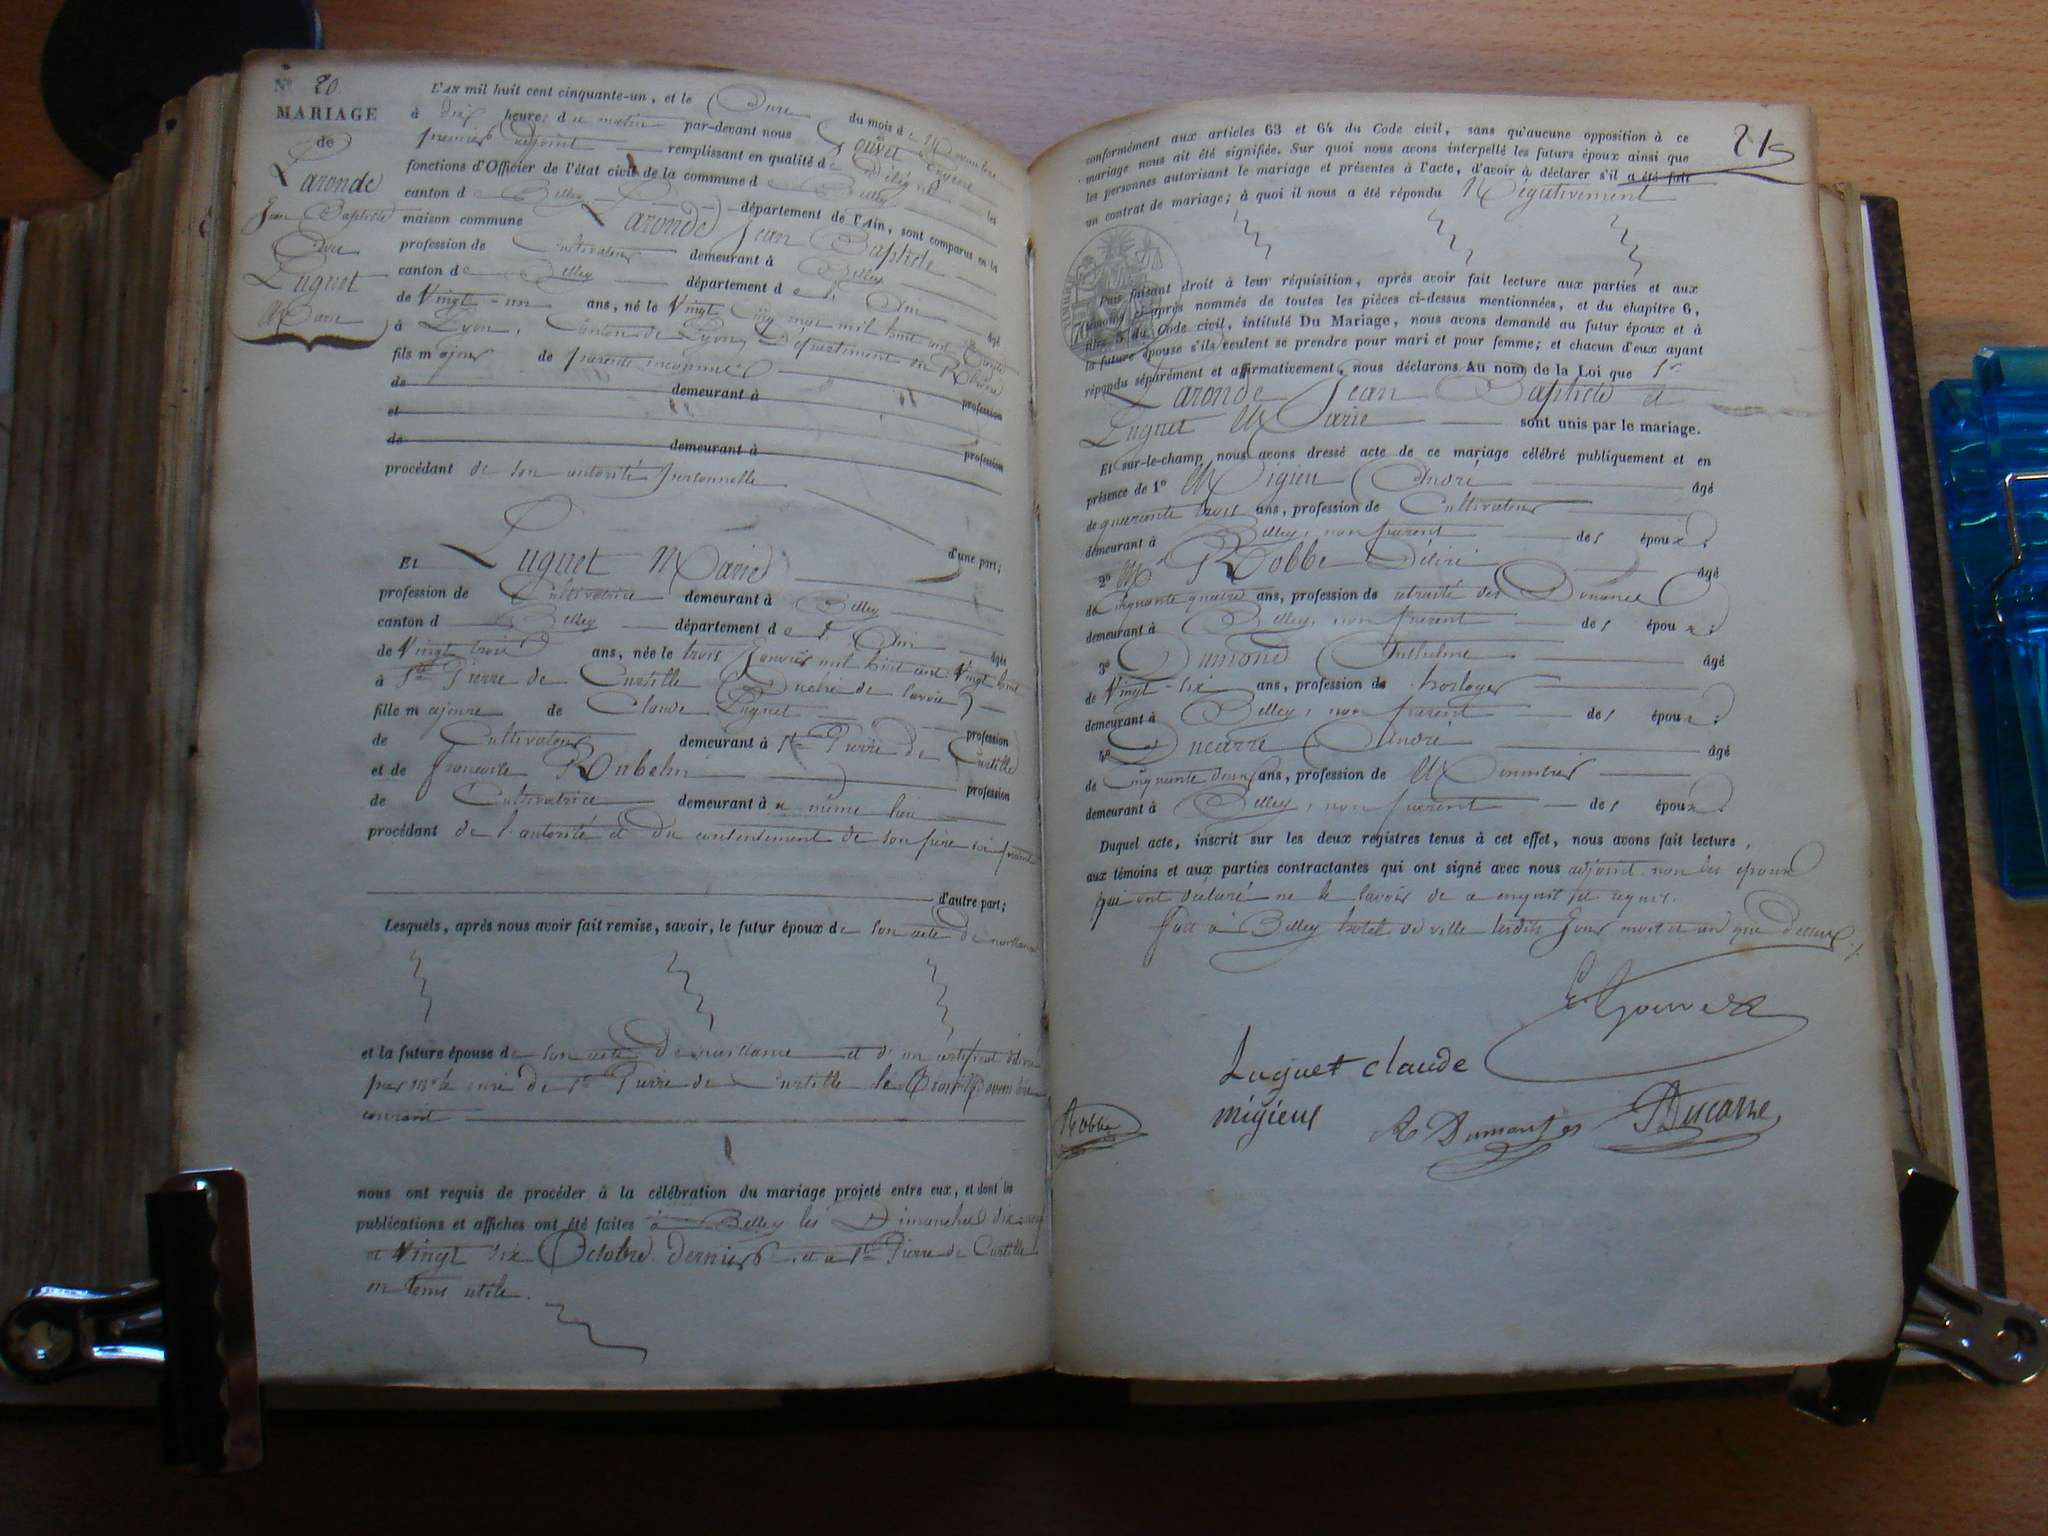 N° 20.
MARIAGE
de
Laronde
Jean Baptiste
Avec
Luguet
Marie
L'AN mil huit cent cinquante-un, et le Onze du mois de Novembre
à dix heures du matin par-devant nous Gouvet Eugène
premier adjoint remplissant en qualité de Délégué les
fonctions d'Officier de l'état civil de la commune de Belley
canton de Belley département de l'Ain, sont comparus en la
maison commune Laronde Jean Baptiste
profession de Cultivateur demeurant à Belley
canton de Belley département de l'Ain âgé
de Vingt-un ans, né le Vingt cinq mai mil huit cent trente
à Lyon, Canton de Lyon, Département du Rhône
fils majeur de parents inconnus
de demeurant à profession
et
de demeurant à profession
procédant de son autorité personnelle
d'une part;
Et Luguet Marie
profession de Cultivatrice demeurant à Belley
canton de Belley département de l'Ain âgée
de Vingt trois ans, née le trois Janvier mil huit cent Vingt huit
à St Pierre de Curtille (Duché de Savoie)
fille majeure de Claude Luguet profession
de Cultivateur demeurant à St Pierre de Curtille
et de françoise Rubelin profession
de Cultivatrice demeurant à u même lieu
procédant de l'autorité et du consentement de son père ici présent
d'autre part;
Lesquels, après nous avoir fait remise, savoir, le futur époux de son acte de naissance
et la future épouse de son acte de naissance et d'un certificat délivré
par Mr le curé de St Pierre de Curtille le Novembre
courant
nous ont requis de procéder à la célébration du mariage projeté entre eux, et dont les
publications et affiches ont été faites à Belley les Dimanches dix-neuf
et Vingt six Octobre derniers et à St Pierre de Curtille
en tems utile.
215
conformément aux articles 63 et 64 du Code civil, sans qu'aucune opposition à ce
mariage nous ait été signifiée. Sur quoi nous avons interpellé les futurs époux ainsi que
les personnes autorisant le mariage et présentes à l'acte, d'avoir à déclarer s'il a été fait
un contrat de mariage; à quoi il nous a été répondu Négativement
Puis faisant droit à leur réquisition, après avoir fait lecture aux parties et aux
témoins ci-après nommés de toutes les pièces ci-dessus mentionnées, et du chapitre 6,
titre 5 du Code civil, intitulé Du Mariage, nous avons demandé au futur époux et à
la future épouse s'ils veulent se prendre pour mari et pour femme; et chacun d'eux ayant
répondu séparément et affirmativement, nous déclarons Au nom de la Loi que Sr
Laronde Jean Baptiste et
Luguet Marie sont unis par le mariage.
Et sur-le-champ nous avons dressé acte de ce mariage célébré publiquement et en
présence de 1° Migieu André âgé
de quarante trois ans, profession de Cultivateur
demeurant à Belley, non parent des époux;
2° M Robbe Désiré âgé
de Cinquante quatre ans, profession de retraité des Douanes
demeurant à Belley, non parent des époux;
3° Dumond Anthelme âgé
de Vingt-six ans, profession de horloger
demeurant à Belley, non parent des époux;
4° Ducarre André âgé
de Cinquante deux ans, profession de Menuisier
demeurant à Belley, non parent des époux.
Duquel acte, inscrit sur les deux registres tenus à cet effet, nous avons fait lecture
aux témoins et aux parties contractantes qui ont signé avec nous adjoint non les époux
qui ont déclaré ne le savoir de ce enquis et requis.
Fait à Belley hotel de ville lesdits Jour mois et an que dessus.
E. Gouvet
Luguet claude
Robbe
migieux
A Dumont
Ducarre